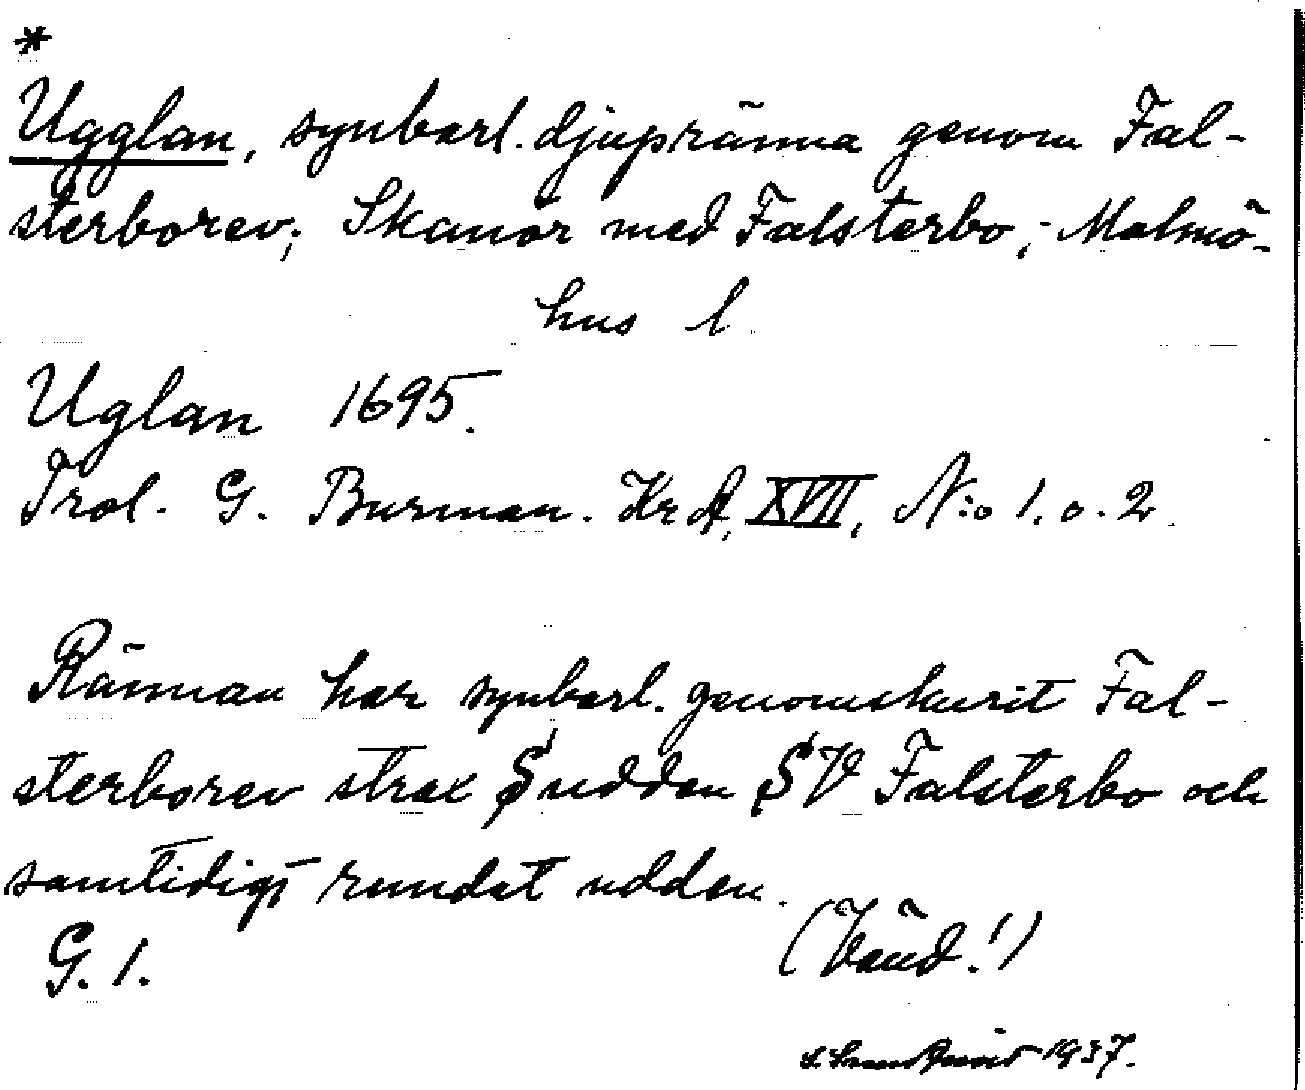 *
Ugglan, synbarl. djupränna genom Fal-
sterborev; Skanör med Falsterbo, Malmö-
hus l.
Uglan 1695.
Trol. G. Burman. Kr A, XVII, N:o 1. o. 2.
Rännan har synbarl. genomskurit Fal-
sterborev strax S udden SV Falsterbo och
samtidigt rundat udden.
(Vänd!)
G. 1.
1937.